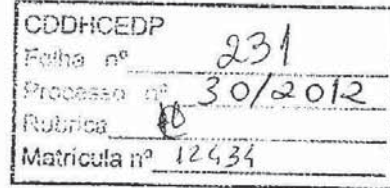 CDDHCEDP
Folha nº 231
Processo nº 30/2012
Rubrica
Matrícula nº 12434